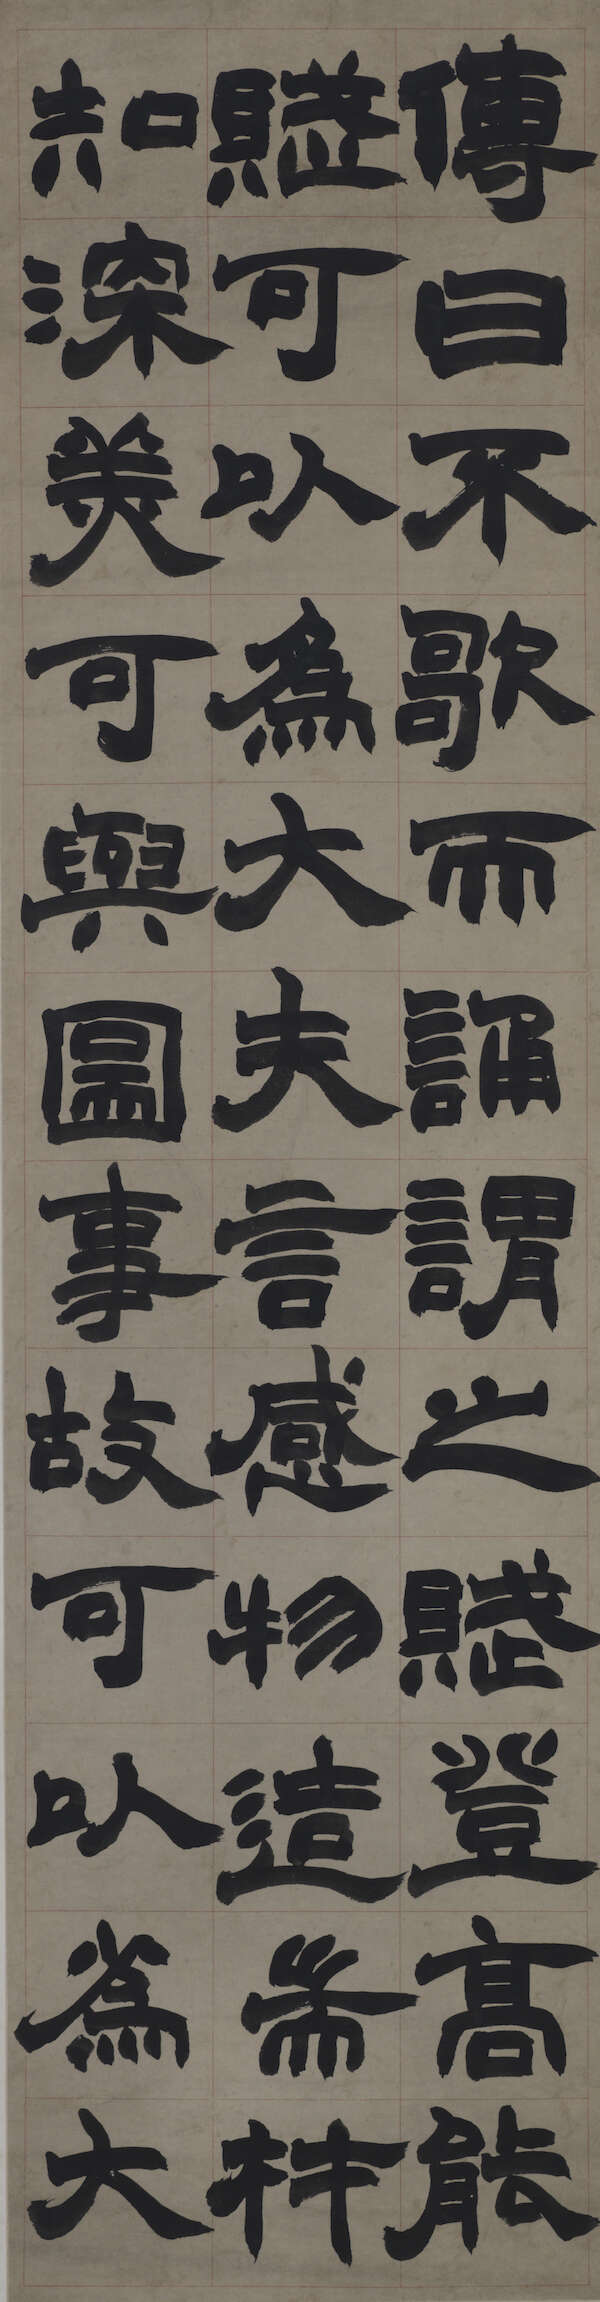 傳曰不歌而誦謂之賦登高能
賦可以為大夫言感物造耑材
知深美可與圖事故可以為大